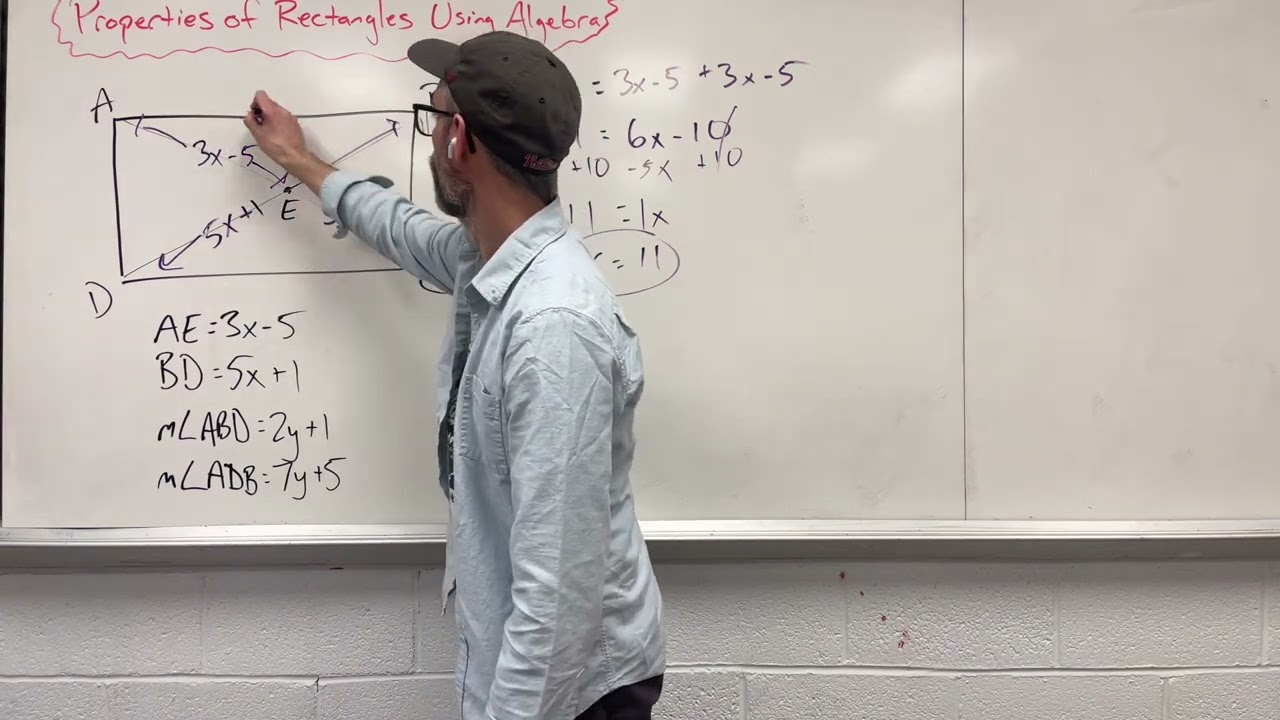 Properties of Rectangles Using Algebra
A
3x-5
5x+1
E
D
AE=3x-5
BD=5x+1
m∠ABD=2y+1
m∠ADB=7y+5
=3x-5 +3x-5
= 6x-10
+10 -5x +10
11 =1x
= 11